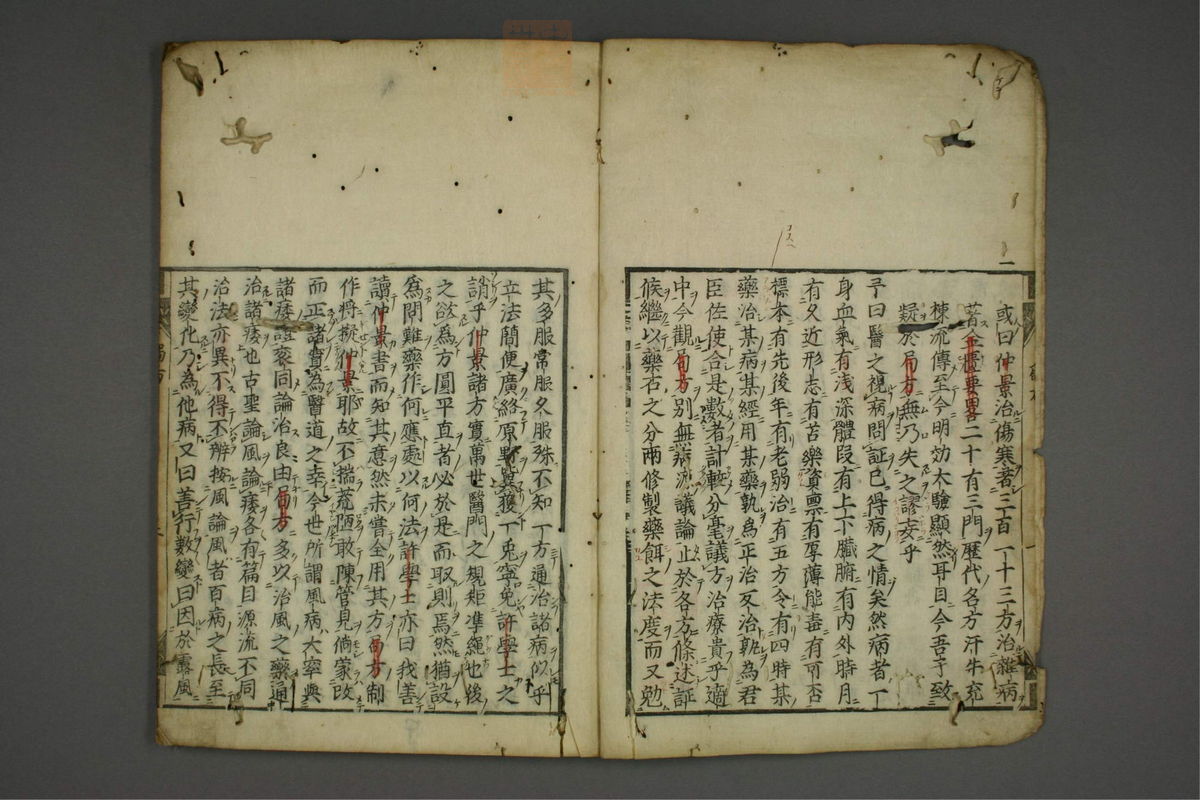 或曰仲景治傷寒著三百一十三方治雜病
著金匱要畧二十有三門歷代名方汗牛充
棟流傳至今明効大驗顯然耳目今吾子致
疑於局方無乃失之謬妄乎
予曰醫之視病問証已得病之情矣然病者一
身血氣有淺深體段有上下臟腑有內外時月
有久近形志有苦樂資稟有厚薄能毒有可否
標本有先後年有老弱治有五方令有四時某
藥治某病某經用某藥孰為正治反治孰為君
臣佐使合是數者計較分毫議方治療貴乎適
中今觀局方別無病源議論止於各方條述証
候繼以藥石之分兩修製藥餌之法度而又勉
其多服常服久服殊不知一方通治諸病似乎
立法簡便廣絡原野冀獲一兎寧免許學士之
誚乎仲景諸方實萬世醫門之規矩準繩也後
之欲爲方圓平直者必於是而取則焉然猶設
爲問難藥作何應處以何法許學士亦曰我善
讀仲景書而知其意然未嘗全用其方局方制
作將擬仲景耶故不揣荒陋敢陳管見倘蒙改
而正諸實為醫道之幸今世所謂風病大率與
諸痿證衮同論治良由局方多以治風之藥通
治諸痿也古聖論風論痿各有篇目源流不同
治法亦異不得不辨按風論風者百病之長至
其變化乃為他病又曰善行數變曰因於露風